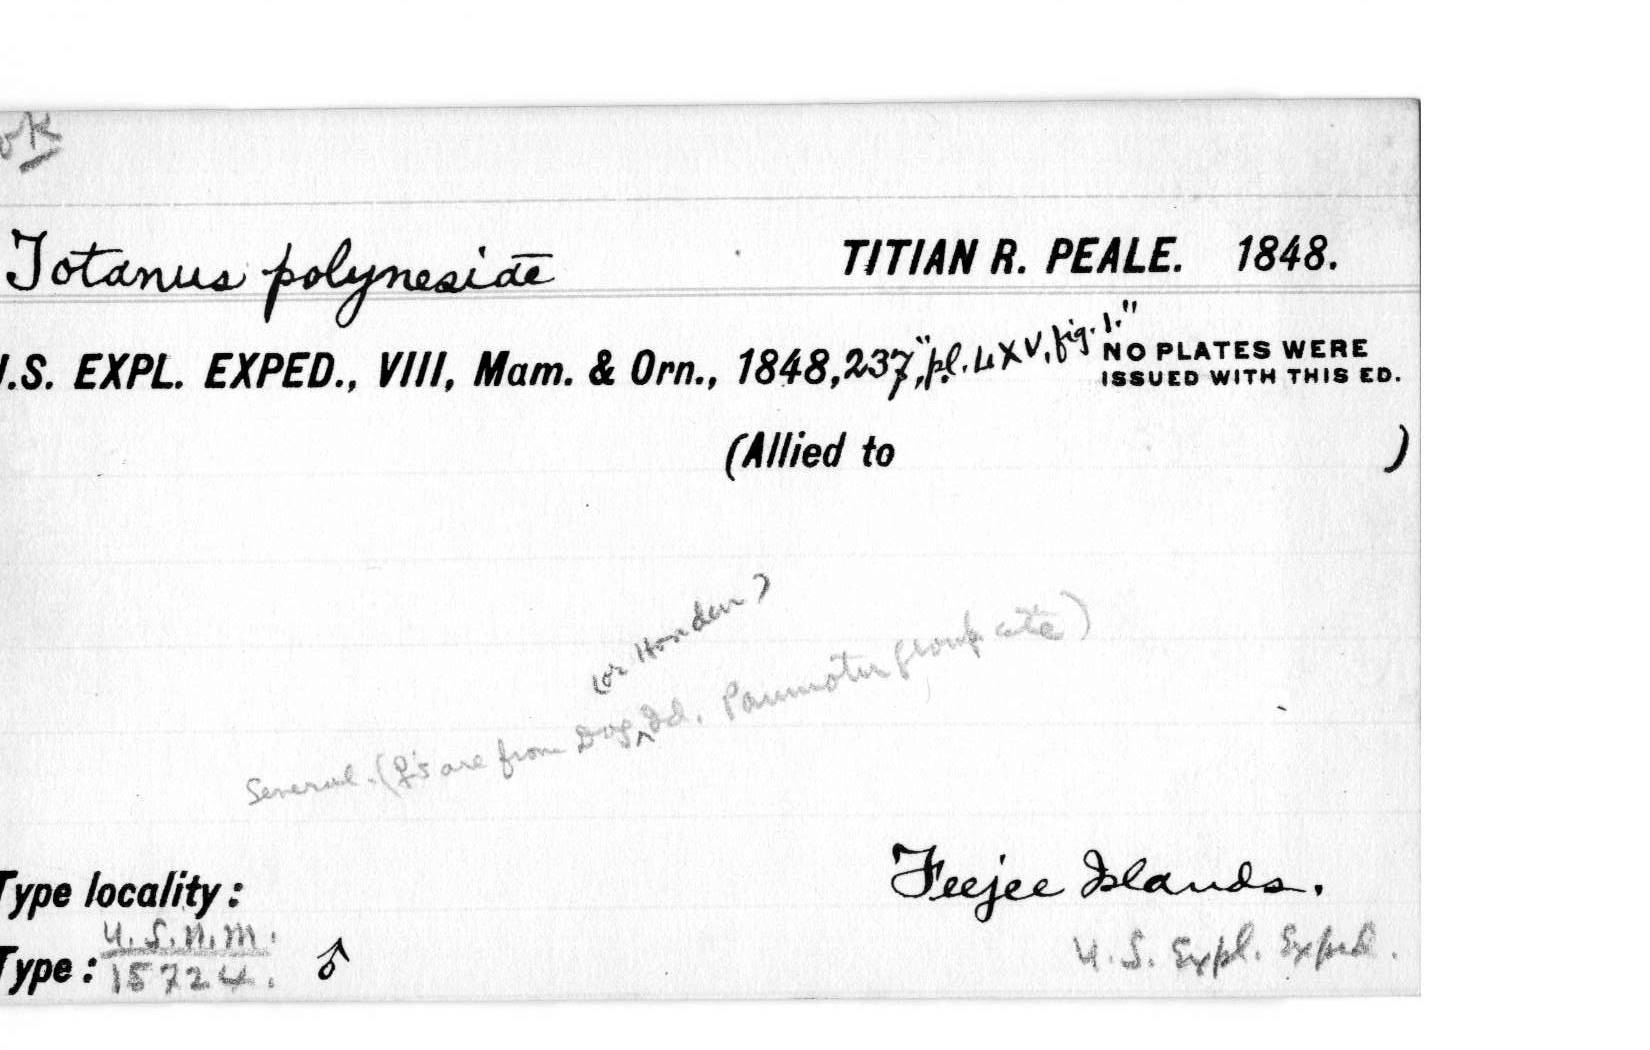 ok
Totanus polynesiae TITIAN R. PEALE. 1848.
.S. EXPL. EXPED., VIII, Mam. & Orn., 1848, 237, "pl. LXV, fig. 1." NO PLATES WERE
ISSUED WITH THIS ED.
(Allied to )
(or Honden)
Several. (♀'s are from Dog ^ Id. Paumotu group etc)
Type locality: Feejee Islands.
U.S.N.M. U.S. Expl. Exped.
Type: 15724. ♂